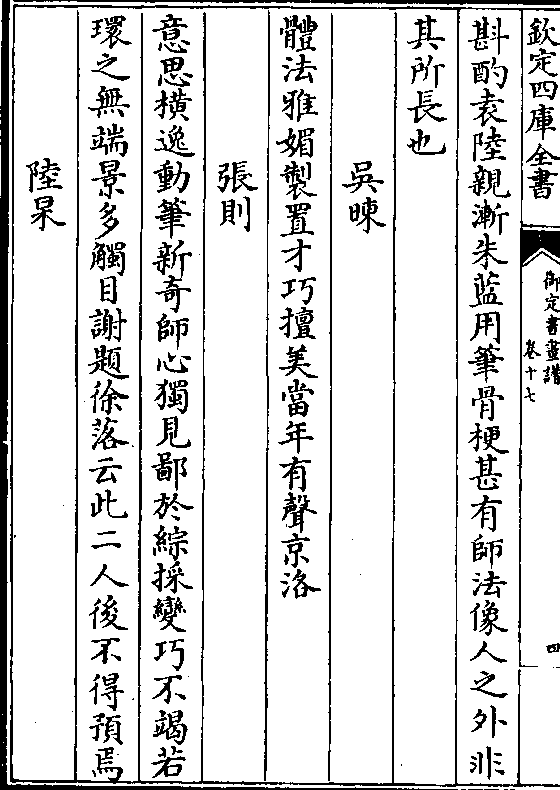 欽定四庫全書
御定書畫譜
卷十七
四
斟酌袁陸親漸朱藍用筆骨梗甚有師法像人之外非
其所長也
吳暕
體法雅媚製置才巧擅美當年有聲京洛
張則
意思横逸動筆新奇師心獨見鄙於綜採變巧不竭若
環之無端景多觸目謝題徐落云此二人後不得預焉
陸杲